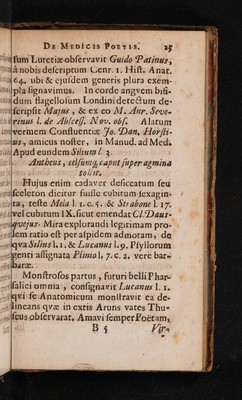 DE MEDICIS POETIS. 25
sum Lutetiæ observavit Guido Patinus,
à nobis descriptum Cenr. 1. Hist. Anat.
64. ubi & ejusdem generis plura exem-
pla signavimus. In corde angvem bifi-
dum flagellosum Londini detectum de-
scripsit Majus, & ex eo M. Aur. Seve-
rinus l. de Abscess. Nov. obs. Alatum
vermem Confluentiæ Jo. Dan. Horsti-
us, amicus noster, in Manud. ad Med.
Apud eundem Silium l. 3.
Antheus, celsumq; caput super agmina
tollit.
Hujus enim cadaver desiccatum seu
sceleton dicitur fuisse cubitum sexagin-
ta, teste Mela l. 1. c. 5. & Strabone l. 17.
vel cubitum IX. sicut emendat Cl. Daus-
qvejus. Mira explorandi legitimam pro-
lem ratio est per aspidem admotam, de
qva Silius l. 1. & Lucanus l. 9. Psyllorum
genti assignata Plinio l. 7. c. 2. verè bar-
baræ.
Monstrosos partus, futuri belli Phar-
salici omnia, consignavit Lucanus l. 1.
qvi se Anatomicum monstravit ea de-
lineans qvæ in extis Aruns vates Thu-
scus observarat. Amavi semper Poëtam,
B 5 Vir-